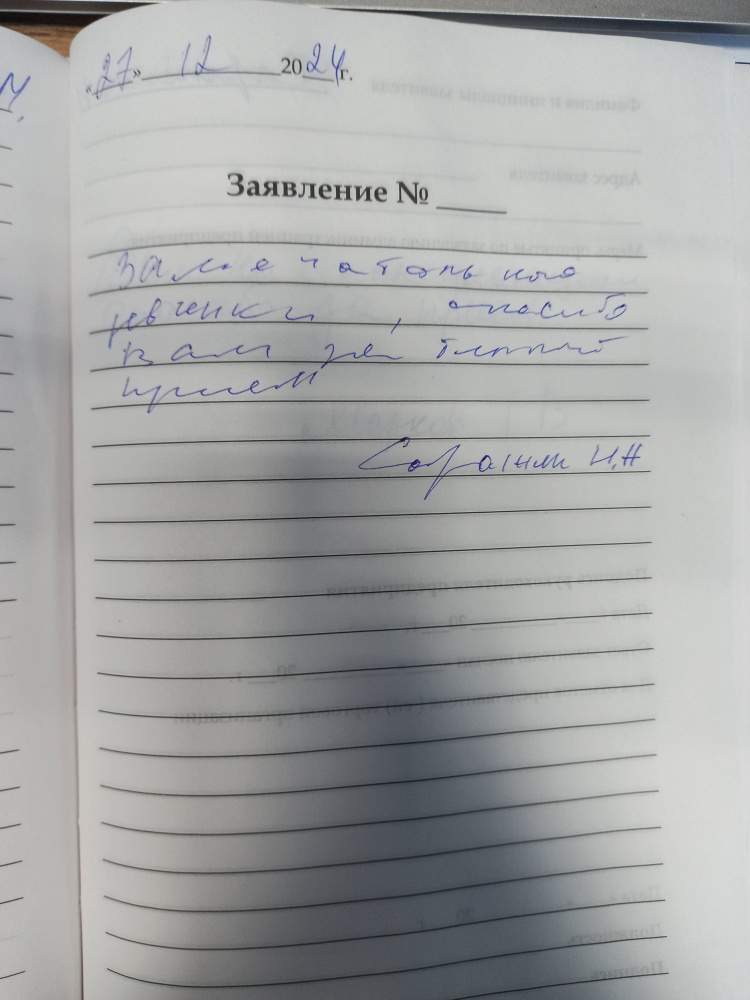 «27» 12 2024г.
Заявление № ____
Замечательные
девченки, спасибо
вам за теплый
прием
И.Н